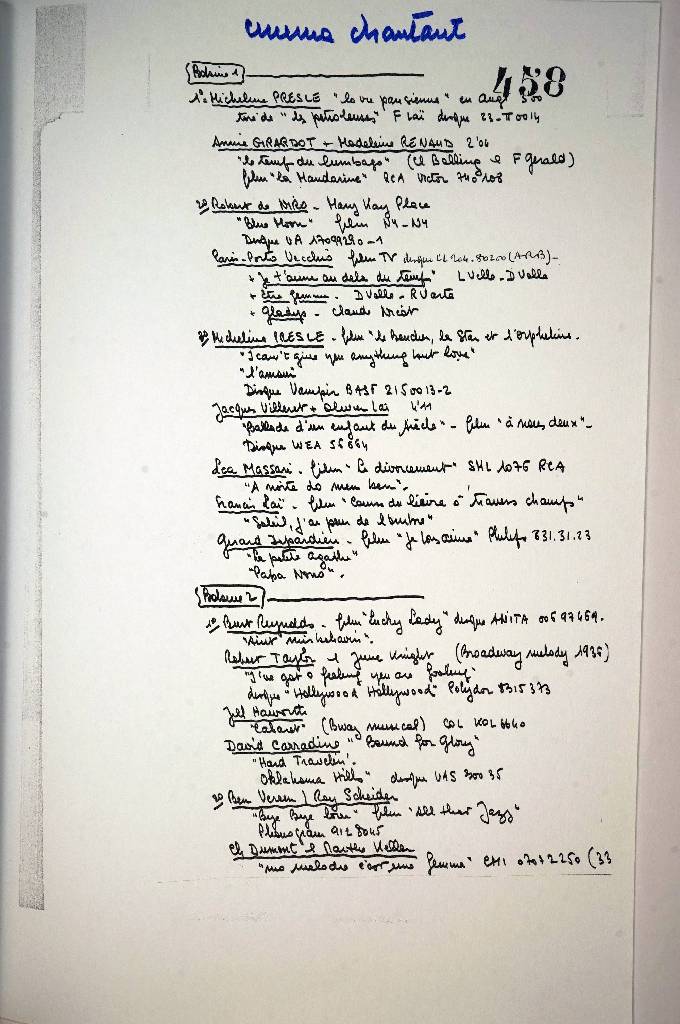 cinema chantant
Bobine 1
458
1º Micheline PRESLE "la vie parisienne" en angl 3'00
tiré de "les petroleuses" F Laï disque 23-T0014
Annie GIRARDOT + Madeleine RENAUD 2'06
"le temps du lumbago" (Cl Bolling & F Gerald)
film "la Mandarine" RCA Victor 740108
2º Robert de NIRO - Mary Kay Place
"Blue Moon" film NY-NY
Disque UA 17099290-1
Paris-Porto Vecchio film TV disque CL 204.80200 (A.R.B) -
+ Je t'aime au dela du temps" L Vella - D Vallo
+ Etre femme - D Vallo - R
+ Gladys - Claude
3º Micheline PRESLE - film "le Boucher, la Star et l'orpheline.
"I can't give you anything but love"
"l'amour"
Disque Vampir BASF 2150013-2
Jacques Villeret + Olivier Laï 4'11
"Ballade d'un enfant du siècle" - film "à nous deux" -
Disque WEA 56664
Lea Massari - film "Le divorcement" SHL 1076 RCA
"A noite do meu bem".
Francis Laï - film "Course du lièvre à travers champs"
"Soleil, j'ai peur de l'ombre"
Gerard Depardieu - film "Je vous aime" Philips 631.31.23
"La petite agathe"
"Papa Nono".
Bobine 2
1º Burt Reynolds - film "Lucky Lady" disque ARISTA 006 97469.
"Aint' misbehavin".
Robert Taylor & June Knight (Broadway melody 1936)
"I've got a feeling you are fooling"
disque "Hollywood Hollywood" Polydor 8315373
Jill Haworth
"Cabaret" (Bway musical) COL KOL 6640
David Carradine "Bound for Glory"
"Hard Travelin'.
Oklahoma Hills" disque UAS 30035
2º Ben Vereen / Roy Scheider
"Bye Bye love" film "All that Jazz"
Phonogram 9128045
Ch Dumont & Marthe Keller
"une melodie c'est une femme" EMI 07072250 (33